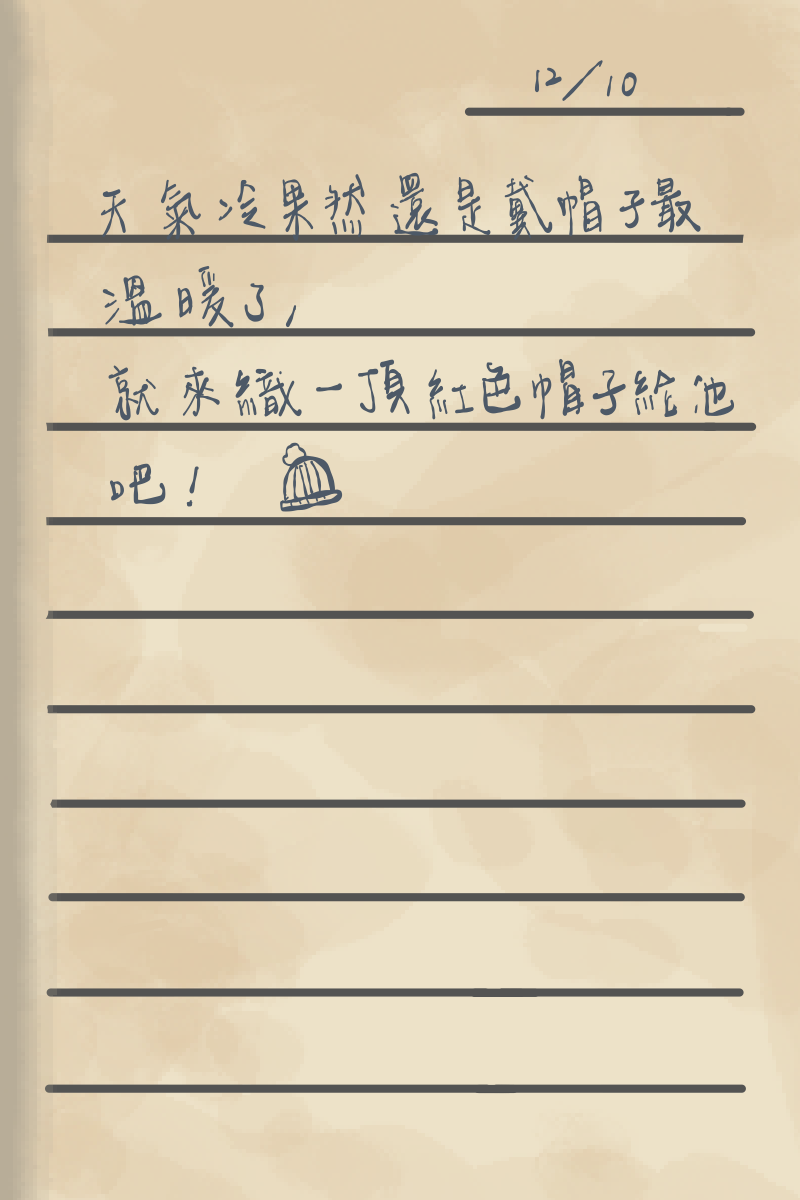 12/10
天氣冷果然還是戴帽子最
溫暖了,
就來織一頂紅色帽子給他
吧!